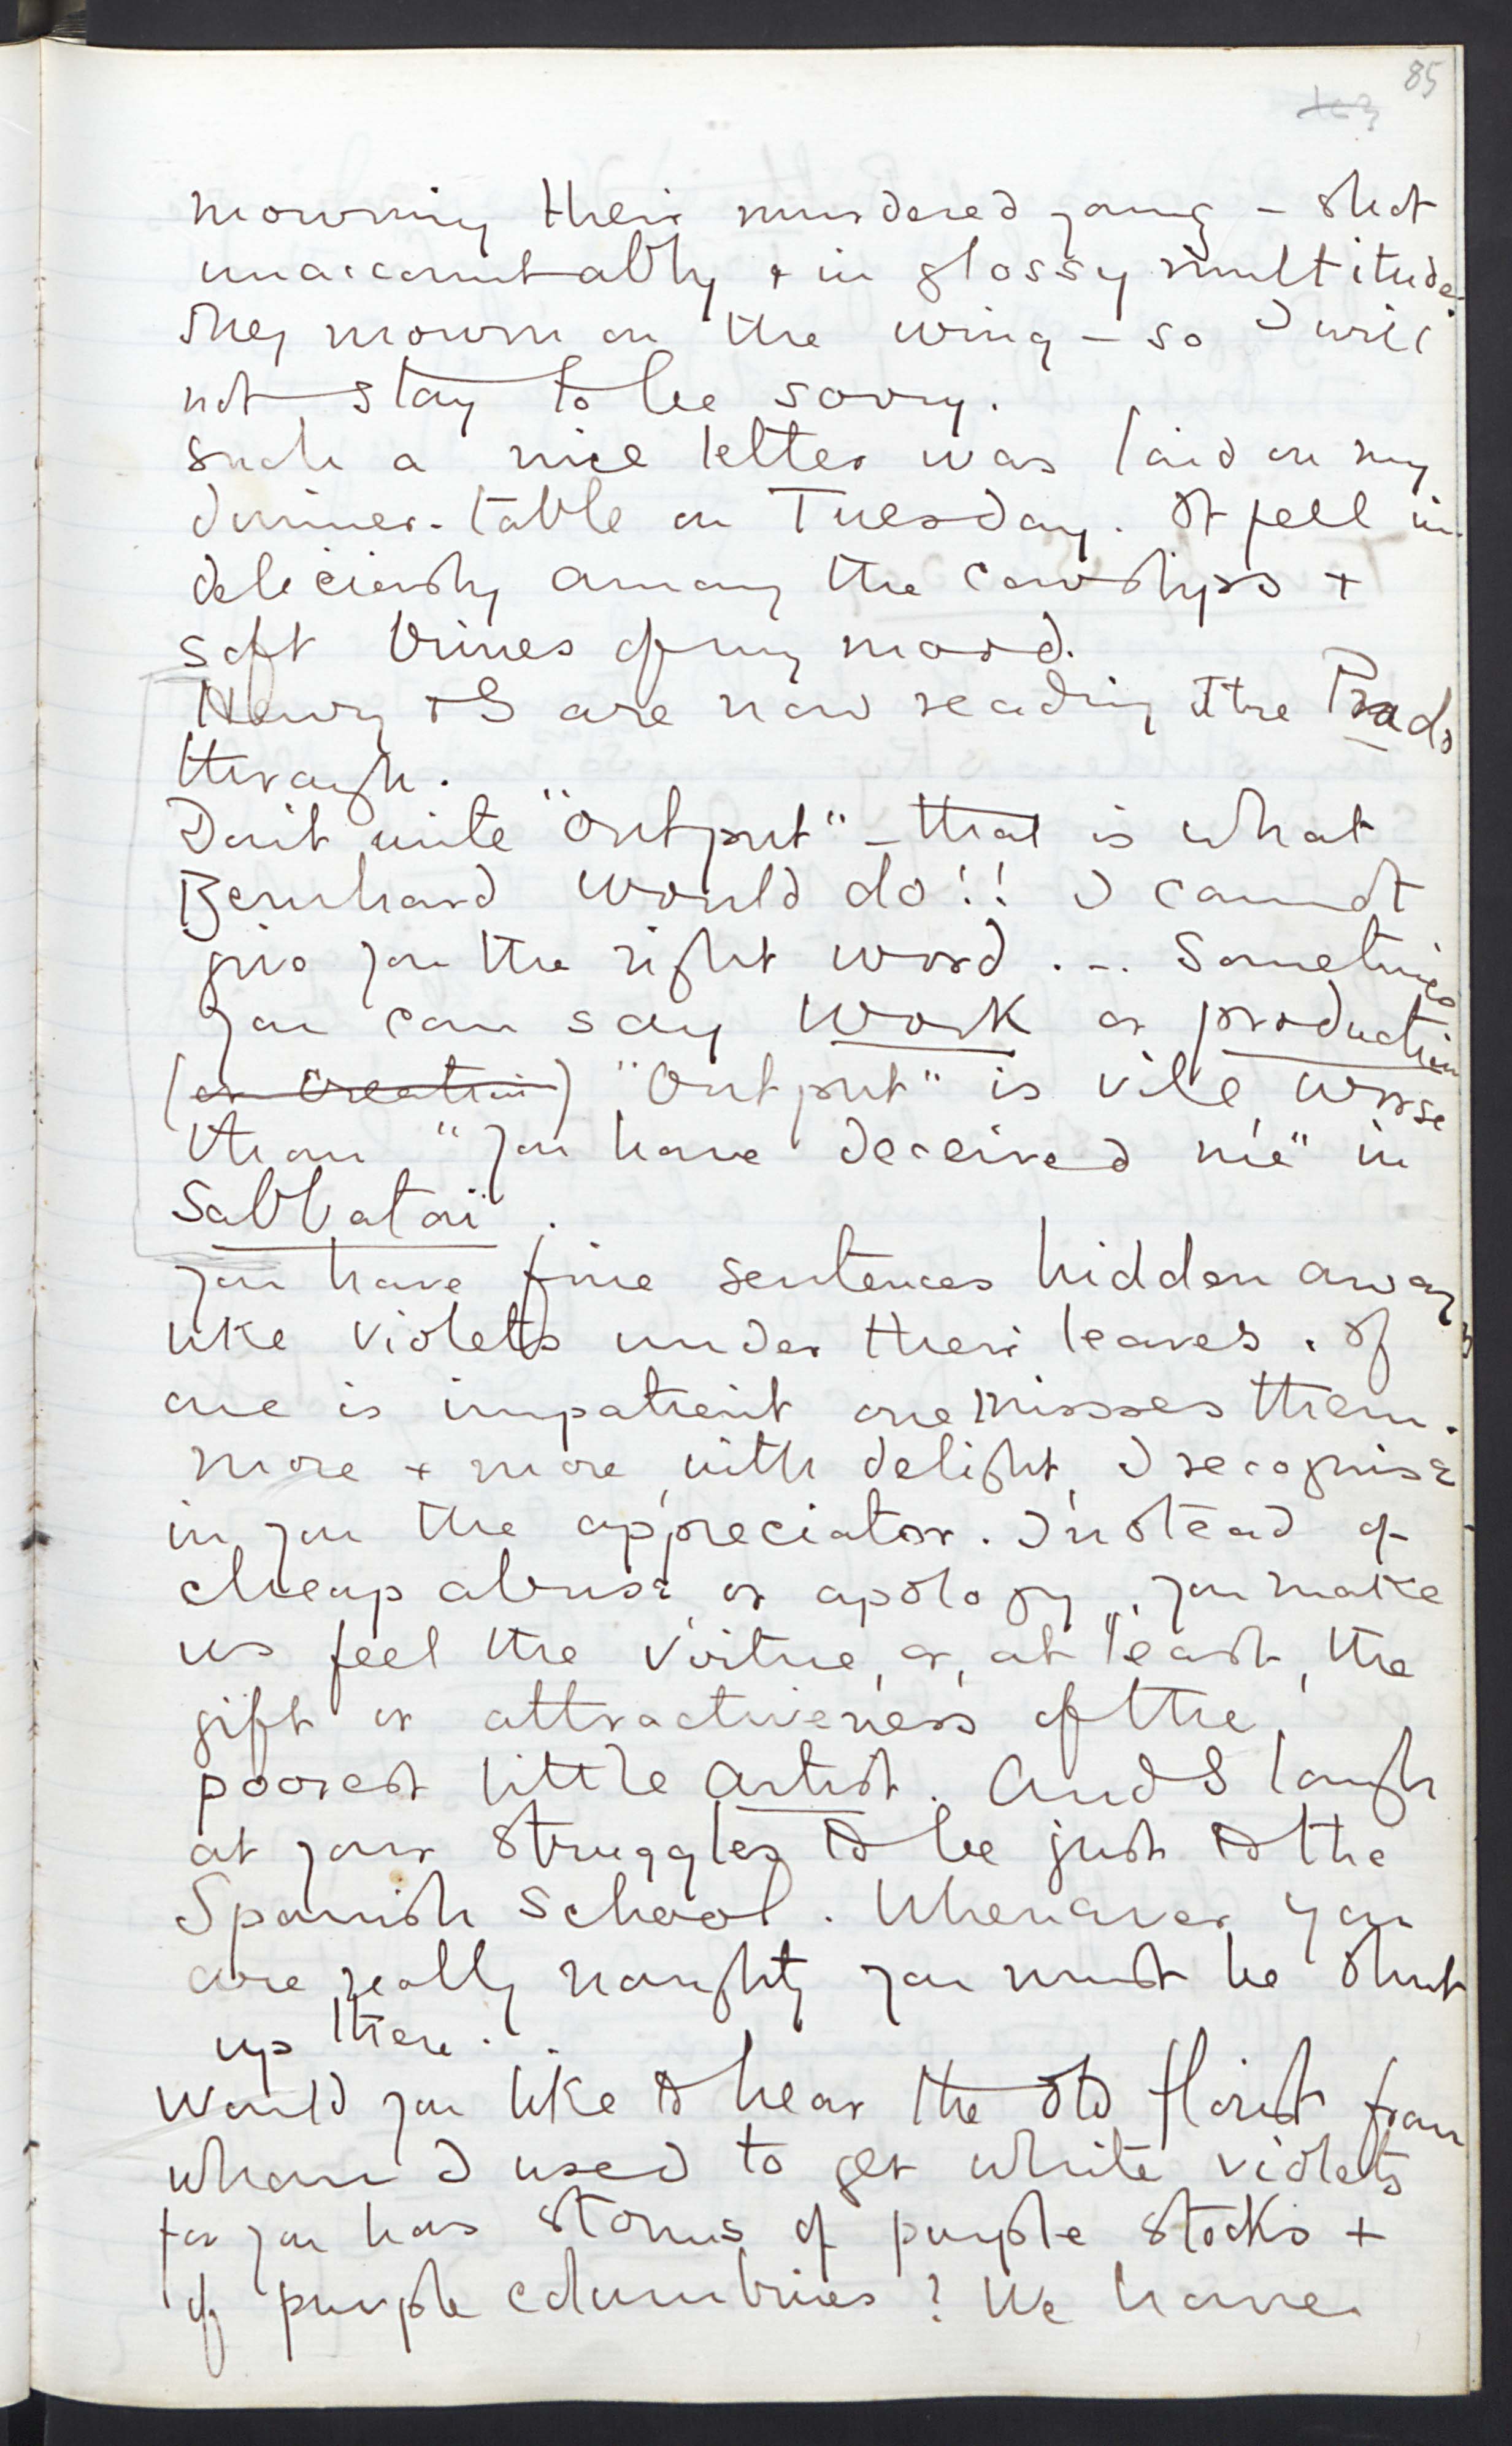 85
mourning their murdered young - shot
unaccountably & in glossy multitude.
They mourn on the wing - so I will
not stay to be sorry.
Such a nice letter was laid on my
dinner-table on Tuesday. It fell in
deliciously among the cowslips +
soft brines of my mood.
Henry + I are now reading the Prado
through.
Don't write "output" - that is what
Bernhard would do!! I cannot
give you the right word . - . Sometimes
you can say work or production
(or creation) "Output" is vile, worse
than "you have deceived me" in
Sabbatai.
You have fine sentences hidden away
like violets under their leaves. If
one is impatient one misses them.
More + more, with delight, I recognise
in you the appreciator. Instead of
cheap abuse or apology, you make
us feel the virtue, or, at least, the
gift or attractiveness of the
poorest little artist. And I laugh
at your struggles to be just to the
Spanish School. Whenever you
are really naughty you must be shut
up there.
Would you like to hear the old florist from
whom I used to get white violets
for you has storms of purple stocks +
of purple columbines? We have